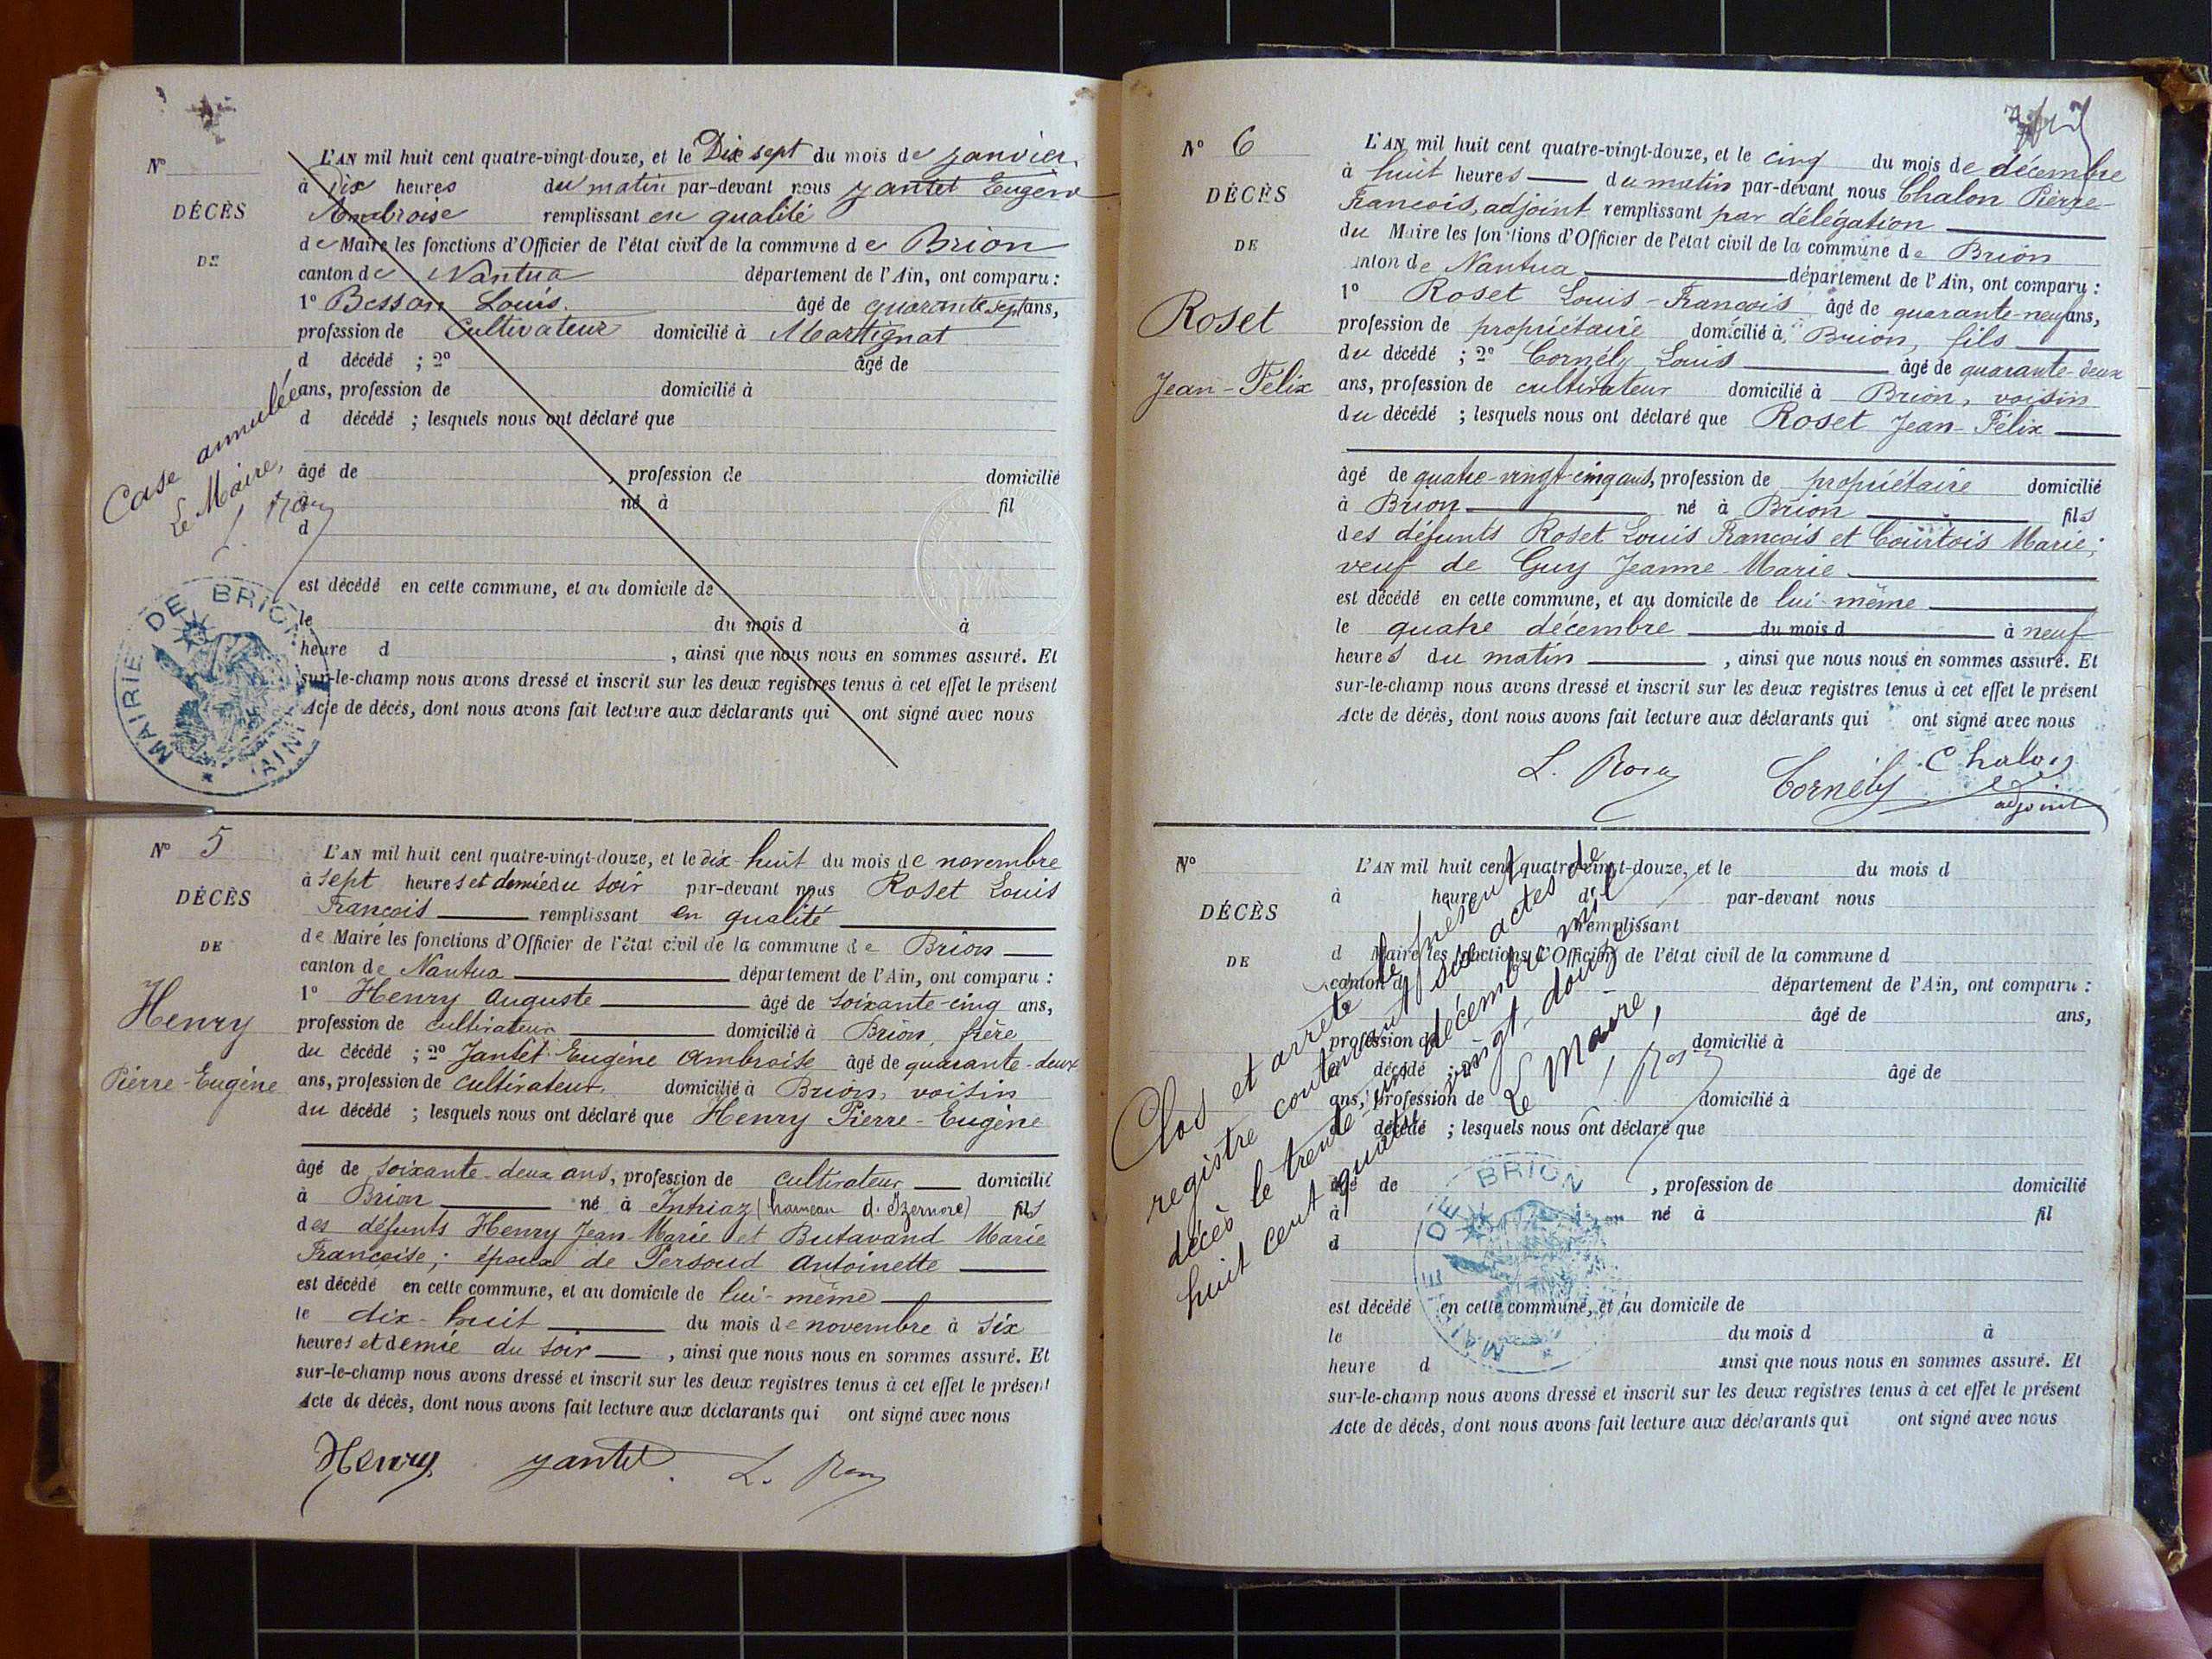 N°
DÉCÈS
DE
Case annulée
Le Maire,
L'AN mil huit cent quatre-vingt-douze, et le Dix sept du mois de janvier
à dix heures du matin par-devant nous Jantet Eugène
Ambroise remplissant en qualité
de Maire les fonctions d'Officier de l'état civil de la commune de Brion
canton de Nantua département de l'Ain, ont comparu :
1° Besson Louis. âgé de quarante sept ans,
profession de Cultivateur domicilié à Martignat
d décédé ; 2° âgé de
ans, profession de domicilié à
d décédé ; lesquels nous ont déclaré que
âgé de , profession de domicilié
à né à fil
d
est décédé en cette commune, et au domicile de
le du mois d à
heure d , ainsi que nous nous en sommes assuré. Et
sur-le-champ nous avons dressé et inscrit sur les deux registres tenus à cet effet le présent
Acte de décès, dont nous avons fait lecture aux déclarants qui ont signé avec nous
MAIRIE DE BRION
(AIN)
N° 5
DÉCÈS
DE
Henry
Pierre-Eugène
L'AN mil huit cent quatre-vingt-douze, et le dix-huit du mois de novembre
à sept heures et demie du soir par-devant nous Roset Louis
François remplissant en qualité
de Maire les fonctions d'Officier de l'état civil de la commune de Brion
canton de Nantua département de l'Ain, ont comparu :
1° Henry Auguste âgé de soixante-cinq ans,
profession de cultivateur domicilié à Brion, frère
du décédé ; 2° Jantet Eugène Ambroise âgé de quarante-deux
ans, profession de cultivateur domicilié à Brion, voisin
du décédé ; lesquels nous ont déclaré que Henry Pierre-Eugène
âgé de soixante-deux ans, profession de cultivateur domicilié
à Brion né à Intriaz (hameau d'Izernore) fils
des défunts Henry Jean-Marie et Butavand Marie
Françoise ; époux de Persoud Antoinette
est décédé en cette commune, et au domicile de lui-même
le dix-huit du mois de novembre à six
heures et demie du soir , ainsi que nous nous en sommes assuré. Et
sur-le-champ nous avons dressé et inscrit sur les deux registres tenus à cet effet le présent
Acte de décès, dont nous avons fait lecture aux déclarants qui ont signé avec nous
Henry Jantet L. Roset
N° 6
DÉCÈS
DE
Roset
Jean-Félix
L'AN mil huit cent quatre-vingt-douze, et le cinq du mois de décembre
à huit heures du matin par-devant nous Chalon Pierre-
François, adjoint remplissant par délégation
du Maire les fonctions d'Officier de l'état civil de la commune de Brion
canton de Nantua département de l'Ain, ont comparu :
1° Roset Louis-François âgé de quarante-neuf ans,
profession de propriétaire domicilié à Brion, fils
du décédé ; 2° Cornély Louis âgé de quarante-deux
ans, profession de cultivateur domicilié à Brion, voisin
du décédé ; lesquels nous ont déclaré que Roset Jean-Félix
âgé de quatre-vingt-cinq ans, profession de propriétaire domicilié
à Brion né à Brion fils
des défunts Roset Louis François et Courtois Marie ;
veuf de Guy Jeanne-Marie
est décédé en cette commune, et au domicile de lui-même
le quatre décembre du mois d à neuf
heures du matin , ainsi que nous nous en sommes assuré. Et
sur-le-champ nous avons dressé et inscrit sur les deux registres tenus à cet effet le présent
Acte de décès, dont nous avons fait lecture aux déclarants qui ont signé avec nous
L. Roset Cornély Chalon
adjoint
N°
DÉCÈS
DE
L'AN mil huit cent quatre-vingt-douze, et le du mois d
à heure d par-devant nous
remplissant
d Maire les fonctions d'Officier de l'état civil de la commune d
canton d département de l'Ain, ont comparu :
âgé de ans,
profession de domicilié à
d décédé ; âgé de
ans, profession de domicilié à
d décédé ; lesquels nous ont déclaré que
âgé de , profession de domicilié
à né à fil
d
est décédé en cette commune, et au domicile de
le du mois d à
heure d ainsi que nous nous en sommes assuré. Et
sur-le-champ nous avons dressé et inscrit sur les deux registres tenus à cet effet le présent
Acte de décès, dont nous avons fait lecture aux déclarants qui ont signé avec nous
Clos et arrêté le présent
registre contenant six actes de
décès le trente-un décembre mil
huit cent quatre-vingt-douze
Le Maire,
L. Roset
MAIRIE DE BRION